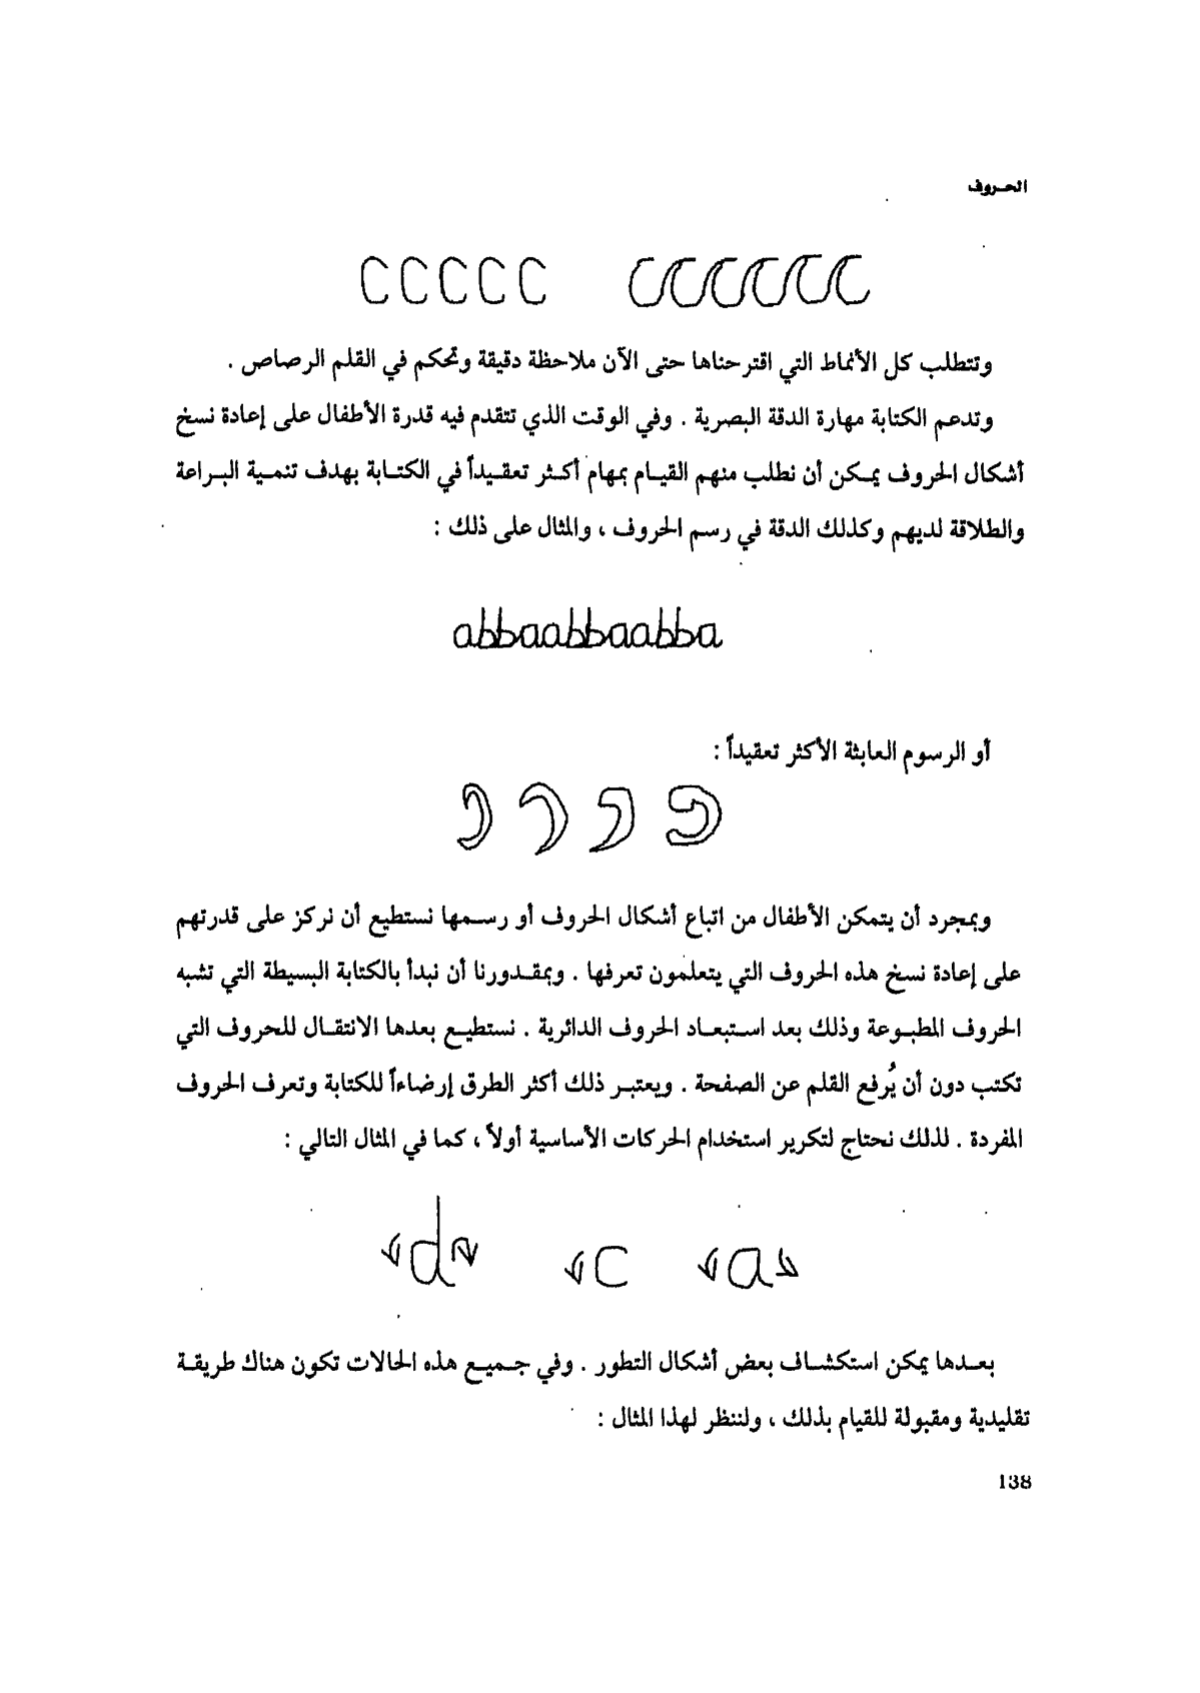 الحروف
ccccc cccccc
وتتطلب كل الأنماط التي اقترحناها حتى الآن ملاحظة دقيقة وتحكم في القلم الرصاص .
وتدعم الكتابة مهارة الدقة البصرية . وفي الوقت الذي تتقدم فيه قدرة الأطفال على إعادة نسخ
أشكال الحروف يمكن أن نطلب منهم القيام بمهام أكثر تعقيداً في الكتابة بهدف تنمية البراعة
والطلاقة لديهم وكذلك الدقة في رسم الحروف ، والمثال على ذلك :
abbaabbaabba
أو الرسوم العابثة الأكثر تعقيداً :
وبمجرد أن يتمكن الأطفال من اتباع أشكال الحروف أو رسمها نستطيع أن نركز على قدرتهم
على إعادة نسخ هذه الحروف التي يتعلمون تعرفها . وبمقدورنا أن نبدأ بالكتابة البسيطة التي تشبه
الحروف المطبوعة وذلك بعد استبعاد الحروف الدائرية . نستطيع بعدها الانتقال للحروف التي
تكتب دون أن يُرفع القلم عن الصفحة . ويعتبر ذلك أكثر الطرق إرضاءاً للكتابة وتعرف الحروف
المفردة . لذلك نحتاج لتكرير استخدام الحركات الأساسية أولاً ، كما في المثال التالي :
d c a
بعدها يمكن استكشاف بعض أشكال التطور . وفي جميع هذه الحالات تكون هناك طريقة
تقليدية ومقبولة للقيام بذلك ، ولننظر لهذا المثال :
138